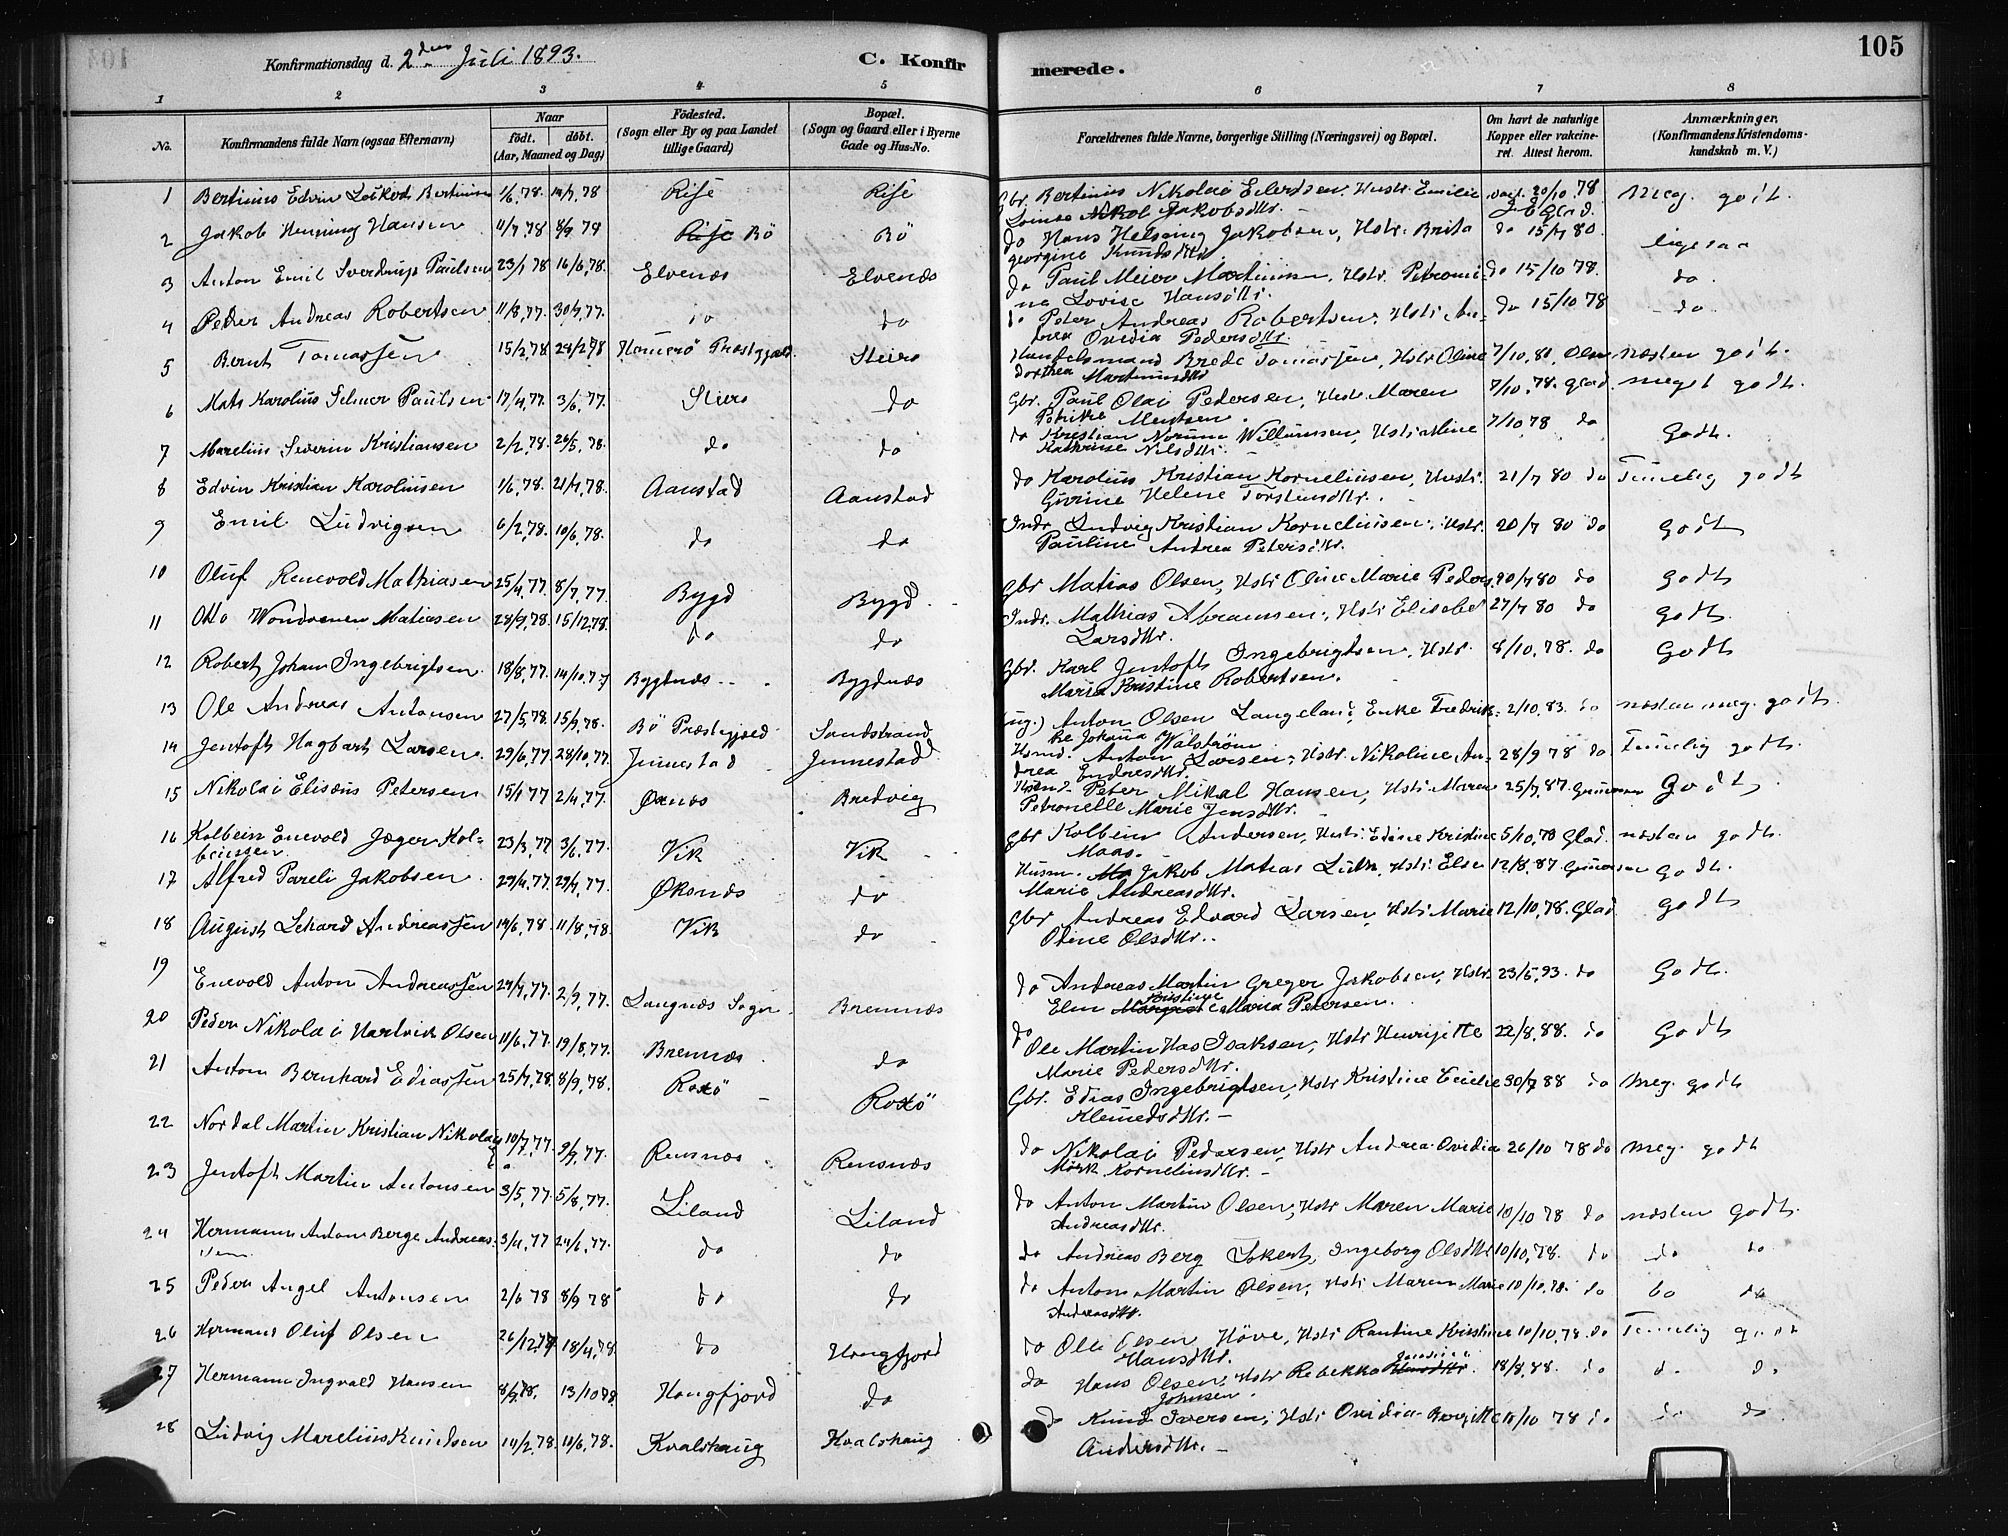 105
Konfirmationsdag d. 2den Juli 1893.
C. Konfirmerede.
1 2 3 4 5 6 7 8
No. Konfirmandens fulde Navn (ogsaa Efternavn) Naar født. døbt. (Aar, Maaned og Dag) Födested. (Sogn eller By og paa Landet tillige Gaard) Bopæl. (Sogn og Gaard eller i Byerne Gade og Hus-No. Forældrenes fulde Navne, borgerlige Stilling (Næringsvei) og Bopæl. Om havt de naturlige Kopper eller vakcineret. Attest herom. Anmærkninger. (Konfirmandens Kristendomskundskab m. V.)
1 Bertinus Edvin 1/6,78. 14/7,78 Risø Risø Gbr. Bertinus Nikolai Eilertsen, Hustr. Emilie 20/10 78 Meg. godt.
Jakobsdtr. Glad.
2 Jakob Henning Hansen 11/7,78 8/9 78 Bö Bö do Hans Helsing Jakobsen, Hstr. Brita do 15/7 80. ligesaa
Georgine Knudsdtr.
3 Anton Emil Sverdrup Paulsen 23/1 78 16/6,78. Elvenæs Elvenæs do Paul Meier Martinsen, Hstr. Petronine do 15/10 78. do.
Lovise Hansdtr.
4 Peder Andreas Robertsen 11/8,77. 30/9,77. do do do Peter Andreas Robertsen, Hstr. Andrea do 15/10 78 do
Ovidia Pedersdtr.
5 Bernt Tomassen 15/2,78 24/2,78 Hamerö Præstegjæld. Steiro Handelsmand Brede Tomassen, Hstr Oline 7/10,80, næsten godt.
Dorthea Martinusdtr
6 Mats Karolius Selmer Paulsen 17/4,77. 3/6,77. Steiro do Gbr. Paul Olai Pedersen, Hustr. Maren 7/10,78. Glad. meget godt.
Petrikke Mentsen.
7 Marelius Severin Kristiansen 2/2,78. 26/5,78. do do do Kristian Willumsen, Hstr. Aline 7/10,78 do Godt.
Kathrine Nilsdtr.
8 Edvin Kristian Karoliusen 1/6,78. 21/7,78. Aanstad Aanstad do Karolius Kristian Korneliussen, Hustr. 21/7 80 do Temelig godt
Gurine Helene Torstensdtr.
9 Emil Ludvigsen 6/2,78. 10/6,78. do do Indr. Ludvig Kristian Korneliussen, Hstr. 20/7 80 do Godt
Pauline Andrea Petersdtr.
10 Oluf Renevold Mathiasen 25/4,77. 8/7,77. Bygd Bygd Gbr Matias Olsen, Hstr Oline Marie Peders. 20/7 80 do Godt
11 Otto Matiasen 28/9,78. 15/12,78. do do Indr. Mathias Abramsen, Hstr Elisabet 27/7 80 do Godt.
Larsdtr.
12 Robert Johan Ingebrigtsen 18/8,77. 14/10,77 Bygdnæs Bygdnæs Gbr. Karl Jentoft Ingebrigtsen, Hstr. 8/10,78. do Godt
Maria Kristine Robertsen.
13 Ole Andreas Antonsen 27/5,78. 15/9,78. Bö Præstegjæld Sandstrand Anton Olsen Langeland, Enke Fredrikke 2/10,83. do næsten meg. godt.
Johana Walstrøm
14 Jentoft Hagbart Larsen 29/6,77. 28/10,77. Jennestad Jennestad Husmd. Anton Larsen, Hstr. Nikoline Andrea 28/9 78 do Temelig godt.
Endresdtr.
15 Nikolai Elisæus Petersen 15/1 77 2/4,77. Bredvig Husmd. Peter Mikal Hansen, Hstr. Maren 25/7,87. Godt
Petronelle Marie Jensdtr.
16 Kolbein Enevold Jæger Kolbeinssen. 23/3,77 3/6,77. Vik Vik Gbr Kolbein Andersen, Hustr. Edine Kristine 5/10,78 Glad. næsten godt.
Maas.
17 Alfred Pareli Jakobsen 29/4,77. 29/7,77. Øksnæs do Husm. Jakob Matias Luth, Hstr. Else 12/8,87 Godt.
Marie Andreasdtr.
18 August Andreassen 14/6,78. 11/8,78. Vik do Gbr Andreas Edvard Larsen, Hstr. Marie 12/10,78. Glad Godt
Oline Olsdtr.
19 Enevold Anton Andreassen 24/7,77. 2/9,77. Langnæs Sogn. Bremnæs do Andreas Martin Greger Jakobsen, Hstr. 23/5,93. do Godt.
Elen Kristine Maria Petersen.
20 Peder Nikolai Hartvik Olsen 11/6,77. 19/8,77. Bremnæs do do Ole Martin Has Isaksen, Hstr Henrijette 22/8,88. do Godt
Marie Pedersdtr.
21 Anton Bernhard Ediassen 25/7,78. 8/9,78. Roksö Roksö Gbr. Edias Ingebrigtsen, Hstr Kristine Emilie 30/7 88 do Meg. godt
Klemedsdtr.
22 Nordal Martin Kristian Nikolai 10/7,77. 9/9,77. Rensnæs Rensnæs do Nikolai Pedersen, Hstr Andrea Ovidia 26/10 78 do Meg. godt
Mørk Korneliusdtr.
23 Jentoft Martin Antonsen 3/5,77. 5/8,77. Liland Liland do Anton Martin Olsen, Hstr Maren Marie 10/10 78 do næsten godt.
Andreasdtr.
24 Hermann Anton Berge Andreassen 3/4,77 24/6,77. do do do Andreas Berg Ingeborg Olsdtr 10/10,78. do do do
25 Peder Angel Antonsen 2/6 78 8/9 78 do do do Anton Martin Olsen, Hstr Maren Marie 10/10,78. do do do
Andreasdtr.
26 Hermans Oluf Olsen 26/12,77 18/4,78 do Hougfjord do Ole Olsen Høve, Hstr Rantine Kristine 10/10,78. do Temelig godt
Hansdtr.
27 Hermann Ingvald Hansen 8/9,78. 13/10 78 Hougfjord do do Hans Olsen, Hstr Rebekka 18/8,88. do do do
Johnsen.
28 Ludvig Marelius Knudsen 14/2,78. 10/6,78. Kvalshaug Kvalshaug do Knud Iversen, Hstr Ovidia Bergitte 18/10 78 do do do
Andersdtr.